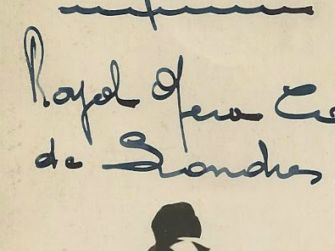 Royal Opera
de Londres